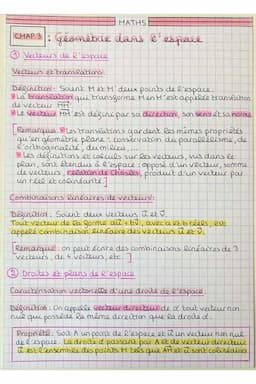 MATHS
CHAP 3 : Géométrie dans l'espace
① Vecteurs de l'espace
Vecteurs et translations:
Définition: Soient M et M' deux points de l'espace.
• La translation qui transforme M en M' est appelée translation
de vecteur MM'.
• Le vecteur MM' est défini par sa direction, son sens et sa norme
[Remarque: • Les translations gardent les mêmes propriétés
qu'en géométrie plane: conservation du parallélisme, de
l'orthogonalité, du milieu, ...
• Les définitions et calculs sur les vecteurs, vus dans le
plan, sont étendus à l'espace: opposé d'un vecteur, somme
de vecteurs, relation de Chasles, produit d'un vecteur par
un réel et colinéarité]
Combinaisons linéaires de vecteurs:
Définition: Soient deux vecteurs u et v.
Tout vecteur de la forme au + bv, avec a et b réels, est
appelé combinaison linéaire des vecteurs u et v.
[Remarque: on peut écrire des combinaisons linéaires de 3
vecteurs, de 4 vecteurs, etc.]
② Droites et plans de l'espace
Caractérisation vectorielle d'une droite de l'espace:
Définition: On appelle vecteur directeur de d tout vecteur non
nul qui possède la même direction que la droite d.
Propriété: Soit A un point de l'espace et u un vecteur non nul
de l'espace. La droite d passant par A et de vecteur directeur
u est l'ensemble des points M tels que AM et u sont colinéaires